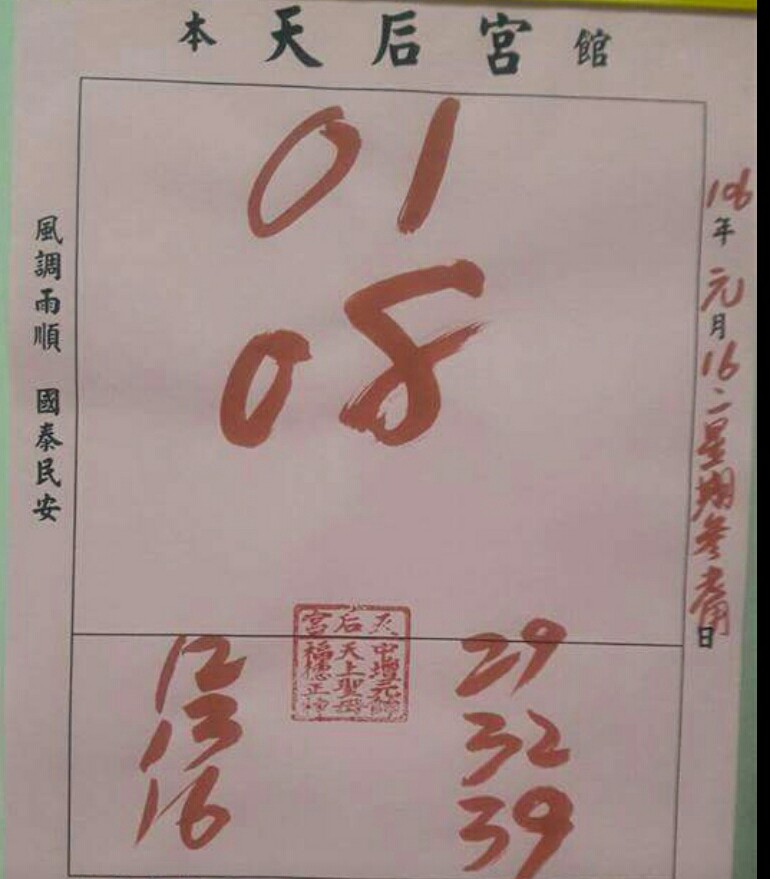 本天后宮館
106年元月16二星期參考用日
01
08
風調雨順 國泰民安
天中壇元帥
后天上聖母
宮福德正神
12
13
16
29
32
39